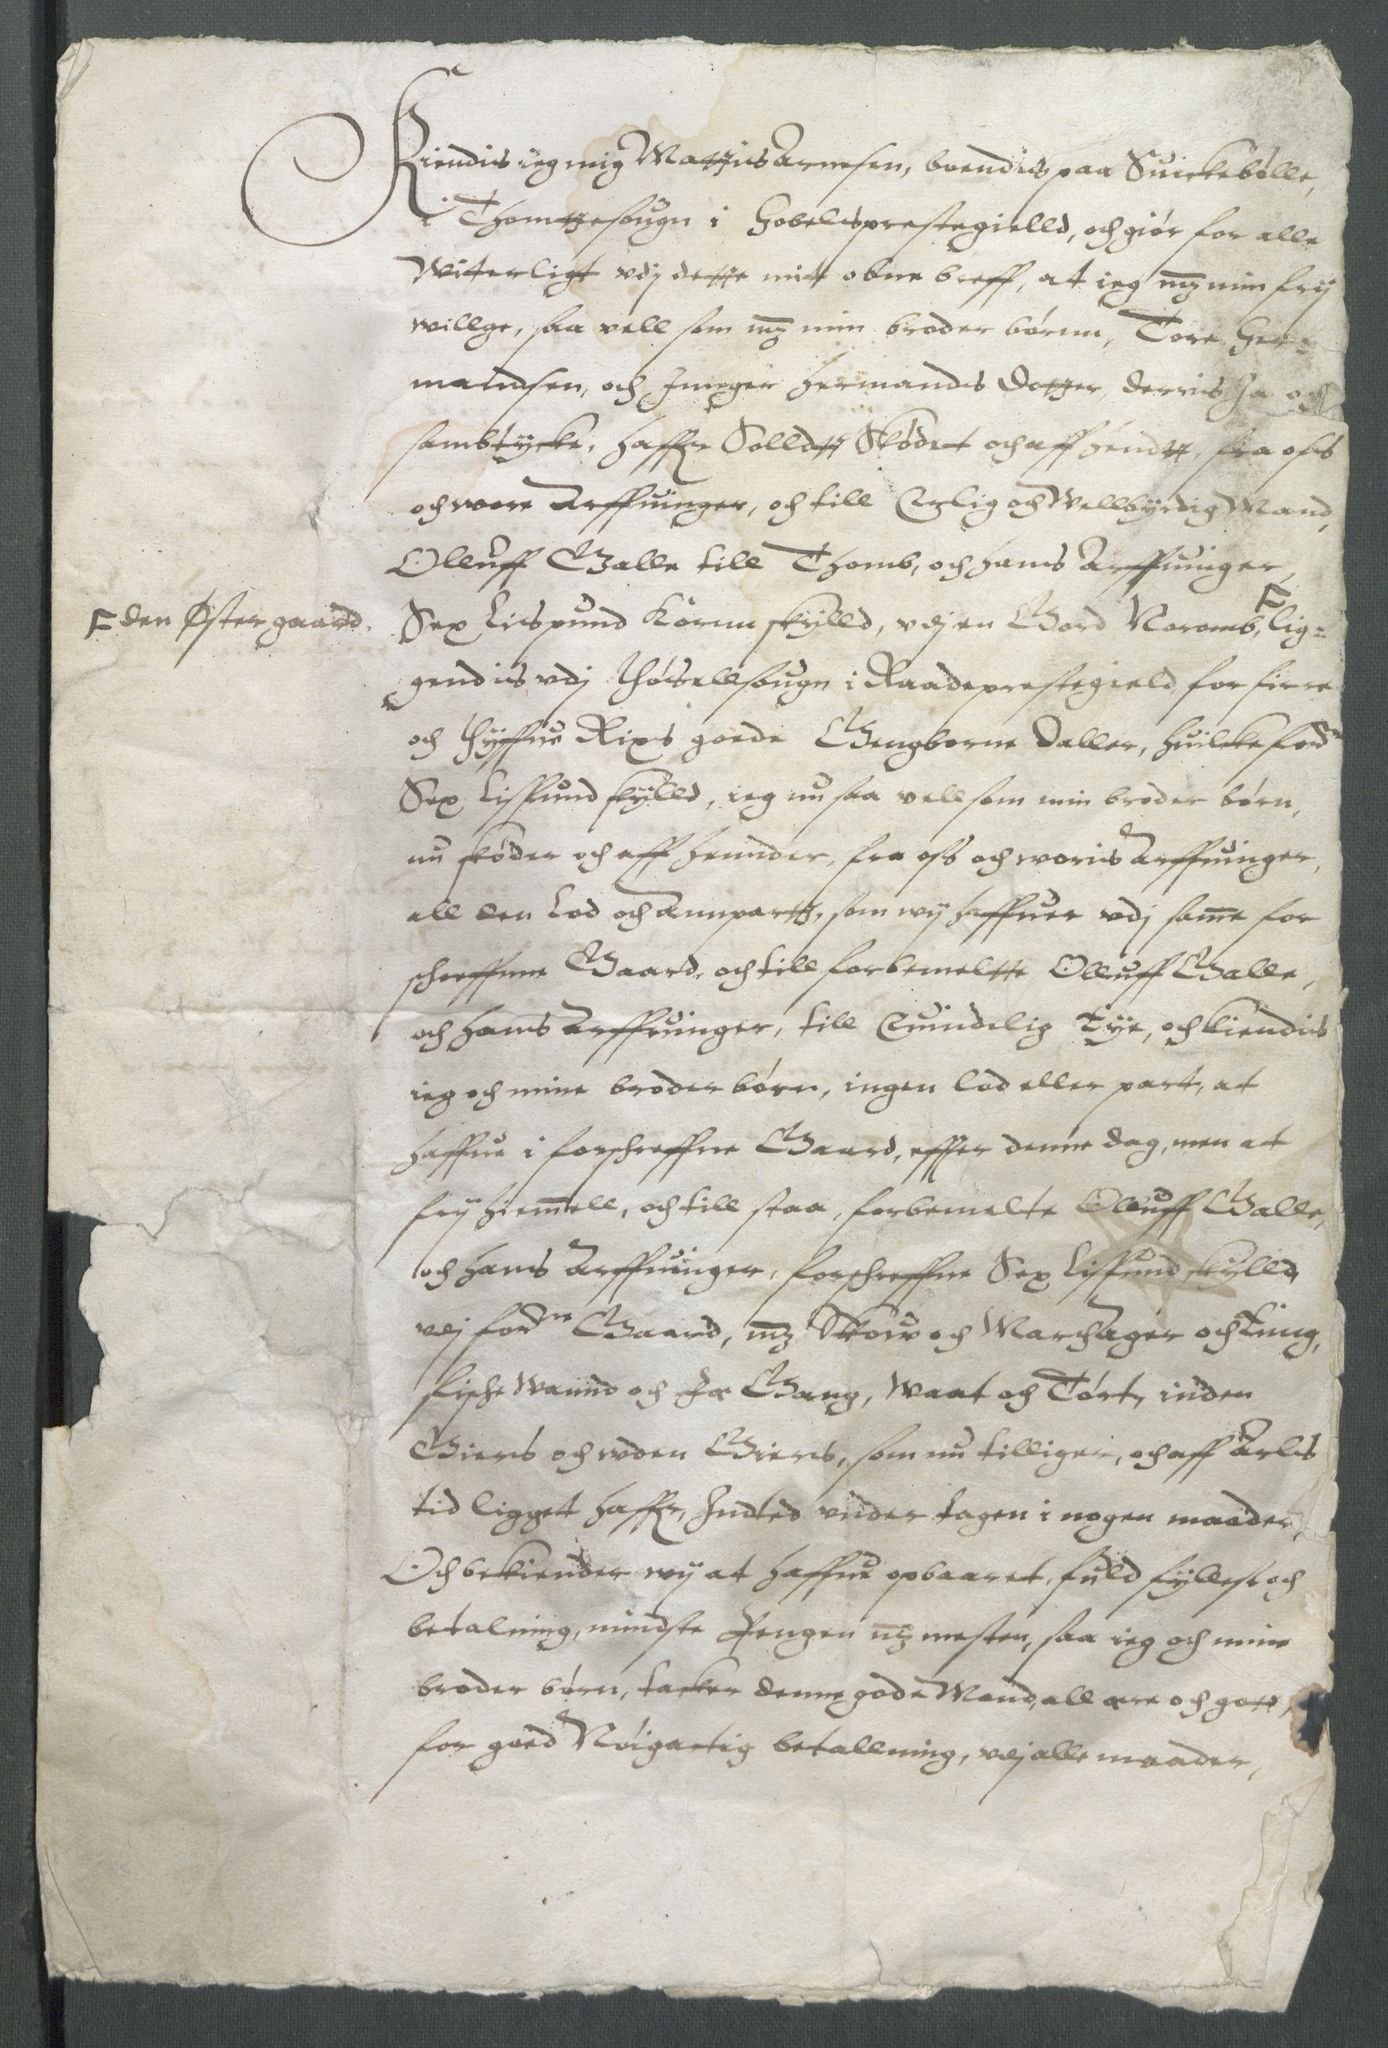 Kiendis ieg mig Mattis Arnesen, boendis paa Suickebølle,
i Thomttesougn i Hobelsprestegielld, och giør for alle
Witerligt vdj dette mitt obne breff, at ieg mz min frÿ
willge, saa vell som mz min broder børnn, Tore Her=
mandsen, och Jnnger Hermands Dotter, derris Ja och
sambtÿcke, haffr Solldtt Skødet och aff hendtt, fra oss
och wore Arffuinger, och till Erlig och Wellbÿrdig Mand,
Olluff Galle till Thomb, och hans Arffuinger,
Ϝ den Østergaard.
Sex Lispund Kornn skÿlld, vdj en Gord Noromb, Ϝ lig=
gendis vdj Thøsellsougn i Raadeprestegield for firre
och thÿffue Rixs goede Gengborne Daller, huilcke fordne
Sex Lissund skÿlld, ieg nu saa vell som min broder børn,
nu skøder och aff hennder, fra oss och woris Arffuinger,
all den Lod och Annpartt, som wÿ haffuer vdj samme for
schreffnne Gaard, och till forbemeltte Olluff Galle,
och hans Arffuinger, till Euindelig Eÿe, och kiendis
ieg och mine broder børn, ingen lod eller part, at
haffue i forschreffne Gaard, effter denne dag, men at
frÿ hiemmell, och till staa, forbemelte Olluff Galle,
och hans Arffuinger, forschreffne Sex Lissund skÿlld
vdj fordne Gaard, mz Skow och March Ager och Eing,
fische Wannd och Fæ Gang, Waat och Tørt, inden
Giers och vden Giers, som nu tilliger, och aff Arls
tid ligget haffr, Indted vnder tagen i nogen maader,
Och bekiender wÿ at haffue opbaaret, fuld fÿllest och
betalning, mindste Pengen mz mesten, saa ieg och mine
broder børn, tacker denne gode Mand, all ære och gott,
for goed Nøigactig betallning, vdj alle maader,